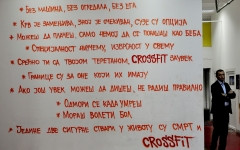 • БЕЗ МАШИНА, БЕЗ ОГЛЕДАЛА, БЕЗ ЕГА
• КРВ ЈЕ ЗАМЕНИВА, ЗНОЈ ЈЕ ОЧЕКИВАН, СУЗЕ СУ ОПЦИЈА
• МОЖЕШ ДА ПЛАЧЕШ, САМО НЕМОЈ ДА СЕ ПОНАШАШ КАО БЕБА
• СПЕЦИЈАЛНОСТ НИЧЕМУ, ИЗВРСНОСТ У СВЕМУ
• СРЕЋНО ТИ СА ТВОЈОМ ТЕРЕТАНОМ, CROSSFIT ЗАУВЕК
• ГРАНИЦЕ СУ ЗА ОНЕ КОЈИ ИХ ИМАЈУ
• АКО ЈОШ УВЕК МОЖЕШ ДА ДИШЕШ, НЕ РАДИШ ПРАВИЛНО
• ОДМОРИ СЕ КАДА УМРЕШ
• МОРАШ ВОЛЕТИ БОЛ
• ЈЕДИНЕ ДВЕ СИГУРНЕ СТВАРИ У ЖИВОТУ СУ СМРТ И
CROSSFIT